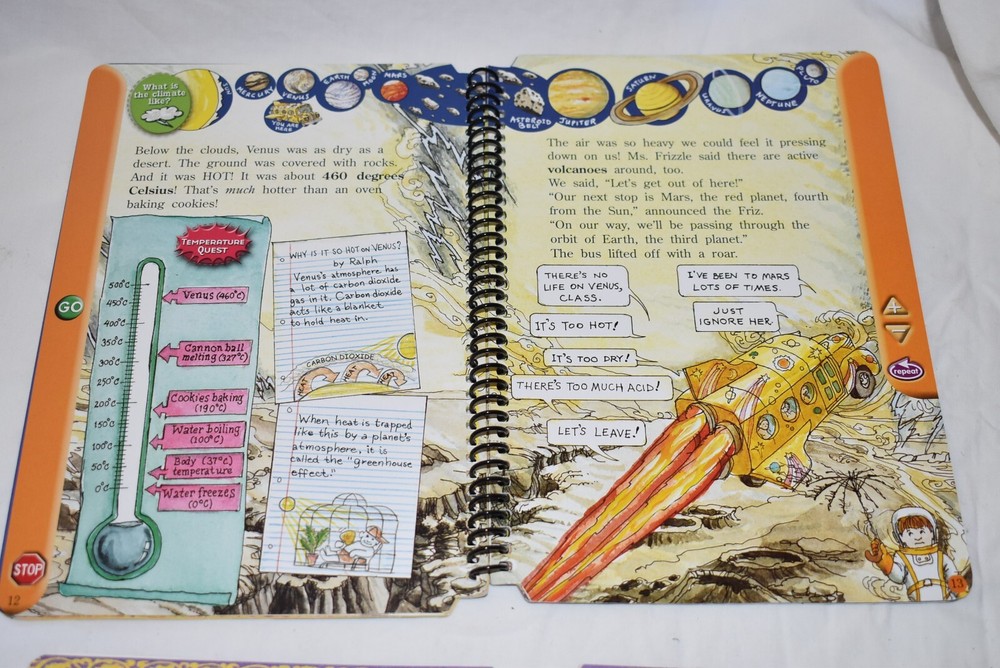 What is
the climate
like?
SUN
MERCURY
VENUS
EARTH
MOON
MARS
YOU ARE
HERE
Below the clouds, Venus was as dry as a
desert. The ground was covered with rocks.
And it was HOT! It was about 460 degrees
Celsius! That's much hotter than an oven
baking cookies!
TEMPERATURE
QUEST
500°C
450°C
400°C
350°C
300°C
250°C
200°C
150°C
100°C
50°C
0°C
Venus (460°C)
Cannon ball
melting (327°C)
Cookies baking
(190°C)
Water boiling
(100°C)
Body (37°C)
temperature
Water freezes
(0°C)
WHY IS IT SO HOT ON VENUS?
by Ralph
Venus's atmosphere has
a lot of carbon dioxide
gas in it. Carbon dioxide
acts like a blanket
to hold heat in.
CARBON DIOXIDE
HEAT
HEAT
HEAT
When heat is trapped
like this by a planet's
atmosphere, it is
called the "greenhouse
effect."
GO
STOP
12
ASTEROID
BELT
JUPITER
SATURN
URANUS
NEPTUNE
PLUTO
The air was so heavy we could feel it pressing
down on us! Ms. Frizzle said there are active
volcanoes around, too.
We said, "Let's get out of here!"
"Our next stop is Mars, the red planet, fourth
from the Sun," announced the Friz.
"On our way, we'll be passing through the
orbit of Earth, the third planet."
The bus lifted off with a roar.
THERE'S NO
LIFE ON VENUS,
CLASS.
I'VE BEEN TO MARS
LOTS OF TIMES.
JUST
IGNORE HER.
IT'S TOO HOT!
IT'S TOO DRY!
THERE'S TOO MUCH ACID!
LET'S LEAVE!
+
−
repeat
13